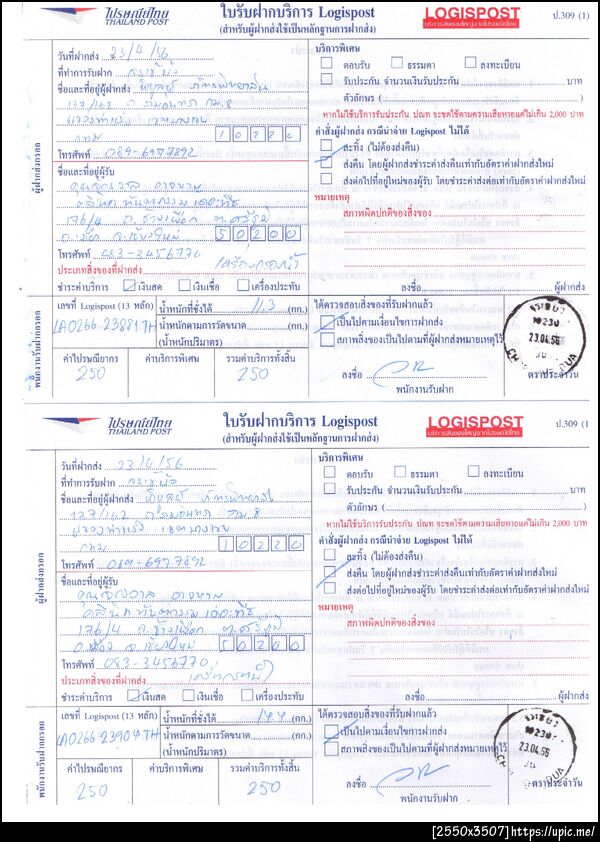 ไปรษณีย์ไทย
THAILAND POST
ใบรับฝากบริการ Logispost
(สำหรับผู้ฝากส่งใช้เป็นหลักฐานการฝากส่ง)
LOGISPOST
บริการส่งของใหญ่จากไปรษณีย์ไทย
ป.309 (1)
ผู้ฝากส่งกรอก
วันที่ฝากส่ง 23/4/56
ที่ทำการรับฝาก
ชื่อและที่อยู่ผู้ฝากส่ง
กม.8
กทม 10220
โทรศัพท์ 089-6977892
ชื่อและที่อยู่ผู้รับ
176/4 ถ.ช้างเผือก ต.ศรีภูมิ
จ.เชียงใหม่ 50200
โทรศัพท์ 083-3456770
ประเภทสิ่งของที่ฝากส่ง เครื่องกรองน้ำ
ชำระค่าบริการ เงินสด เงินเชื่อ เครื่องประทับ
บริการพิเศษ
ตอบรับ ธรรมดา ลงทะเบียน
รับประกัน จำนวนเงินรับประกัน บาท
ตัวอักษร ( )
หากไม่ใช้บริการรับประกัน ปณท จะชดใช้ตามความเสียหายแต่ไม่เกิน 2,000 บาท
คำสั่งผู้ฝากส่ง กรณีนำจ่าย Logispost ไม่ได้
ละทิ้ง (ไม่ต้องส่งคืน)
ส่งคืน โดยผู้ฝากส่งชำระค่าส่งคืนเท่ากับอัตราค่าฝากส่งใหม่
ส่งต่อไปที่อยู่ใหม่ของผู้รับ โดยชำระค่าส่งต่อเท่ากับอัตราค่าฝากส่งใหม่
หมายเหตุ
สภาพผิดปกติของสิ่งของ
ลงชื่อ ผู้ฝากส่ง
พนักงานรับฝากกรอก
เลขที่ Logispost (13 หลัก)
LA0266-23881TH
น้ำหนักที่ชั่งได้ 11.3 (กก.)
น้ำหนักตามการวัดขนาด (กก.)
(น้ำหนักปริมาตร)
ค่าไปรษณียากร ค่าบริการพิเศษ รวมค่าบริการทั้งสิ้น
250 250
ได้ตรวจสอบสิ่งของที่รับฝากแล้ว
เป็นไปตามเงื่อนไขการฝากส่ง
สภาพสิ่งของเป็นไปตามที่ผู้ฝากส่งหมายเหตุไว้
ลงชื่อ
พนักงานรับฝาก
รามอินทรา
10230
23.04.56
ตราประจำวัน
ไปรษณีย์ไทย
THAILAND POST
ใบรับฝากบริการ Logispost
(สำหรับผู้ฝากส่งใช้เป็นหลักฐานการฝากส่ง)
LOGISPOST
บริการส่งของใหญ่จากไปรษณีย์ไทย
ป.309 (1
ผู้ฝากส่งกรอก
วันที่ฝากส่ง 23/4/56
ที่ทำการรับฝาก
ชื่อและที่อยู่ผู้ฝากส่ง
127/162 กม.8
กทม 10220
โทรศัพท์ 089-6977892
ชื่อและที่อยู่ผู้รับ
176/4 ถ.ช้างเผือก ต.ศรีภูมิ
อ.เมือง จ.เชียงใหม่ 50200
โทรศัพท์ 083-3456770
ประเภทสิ่งของที่ฝากส่ง เครื่องกรองน้ำ
ชำระค่าบริการ เงินสด เงินเชื่อ เครื่องประทับ
บริการพิเศษ
ตอบรับ ธรรมดา ลงทะเบียน
รับประกัน จำนวนเงินรับประกัน บาท
ตัวอักษร ( )
หากไม่ใช้บริการรับประกัน ปณท จะชดใช้ตามความเสียหายแต่ไม่เกิน 2,000 บาท
คำสั่งผู้ฝากส่ง กรณีนำจ่าย Logispost ไม่ได้
ละทิ้ง (ไม่ต้องส่งคืน)
ส่งคืน โดยผู้ฝากส่งชำระค่าส่งคืนเท่ากับอัตราค่าฝากส่งใหม่
ส่งต่อไปที่อยู่ใหม่ของผู้รับ โดยชำระค่าส่งต่อเท่ากับอัตราค่าฝากส่งใหม่
หมายเหตุ
สภาพผิดปกติของสิ่งของ
ลงชื่อ ผู้ฝากส่ง
พนักงานรับฝากกรอก
เลขที่ Logispost (13 หลัก)
LA0266 23904TH
น้ำหนักที่ชั่งได้ 14.4 (กก.)
น้ำหนักตามการวัดขนาด (กก.)
(น้ำหนักปริมาตร)
ค่าไปรษณียากร ค่าบริการพิเศษ รวมค่าบริการทั้งสิ้น
250 250
ได้ตรวจสอบสิ่งของที่รับฝากแล้ว
เป็นไปตามเงื่อนไขการฝากส่ง
สภาพสิ่งของเป็นไปตามที่ผู้ฝากส่งหมายเหตุไว้
ลงชื่อ
พนักงานรับฝาก
10230
23.04.56
ตราประจำวัน
[2550x3507]https://upic.me/